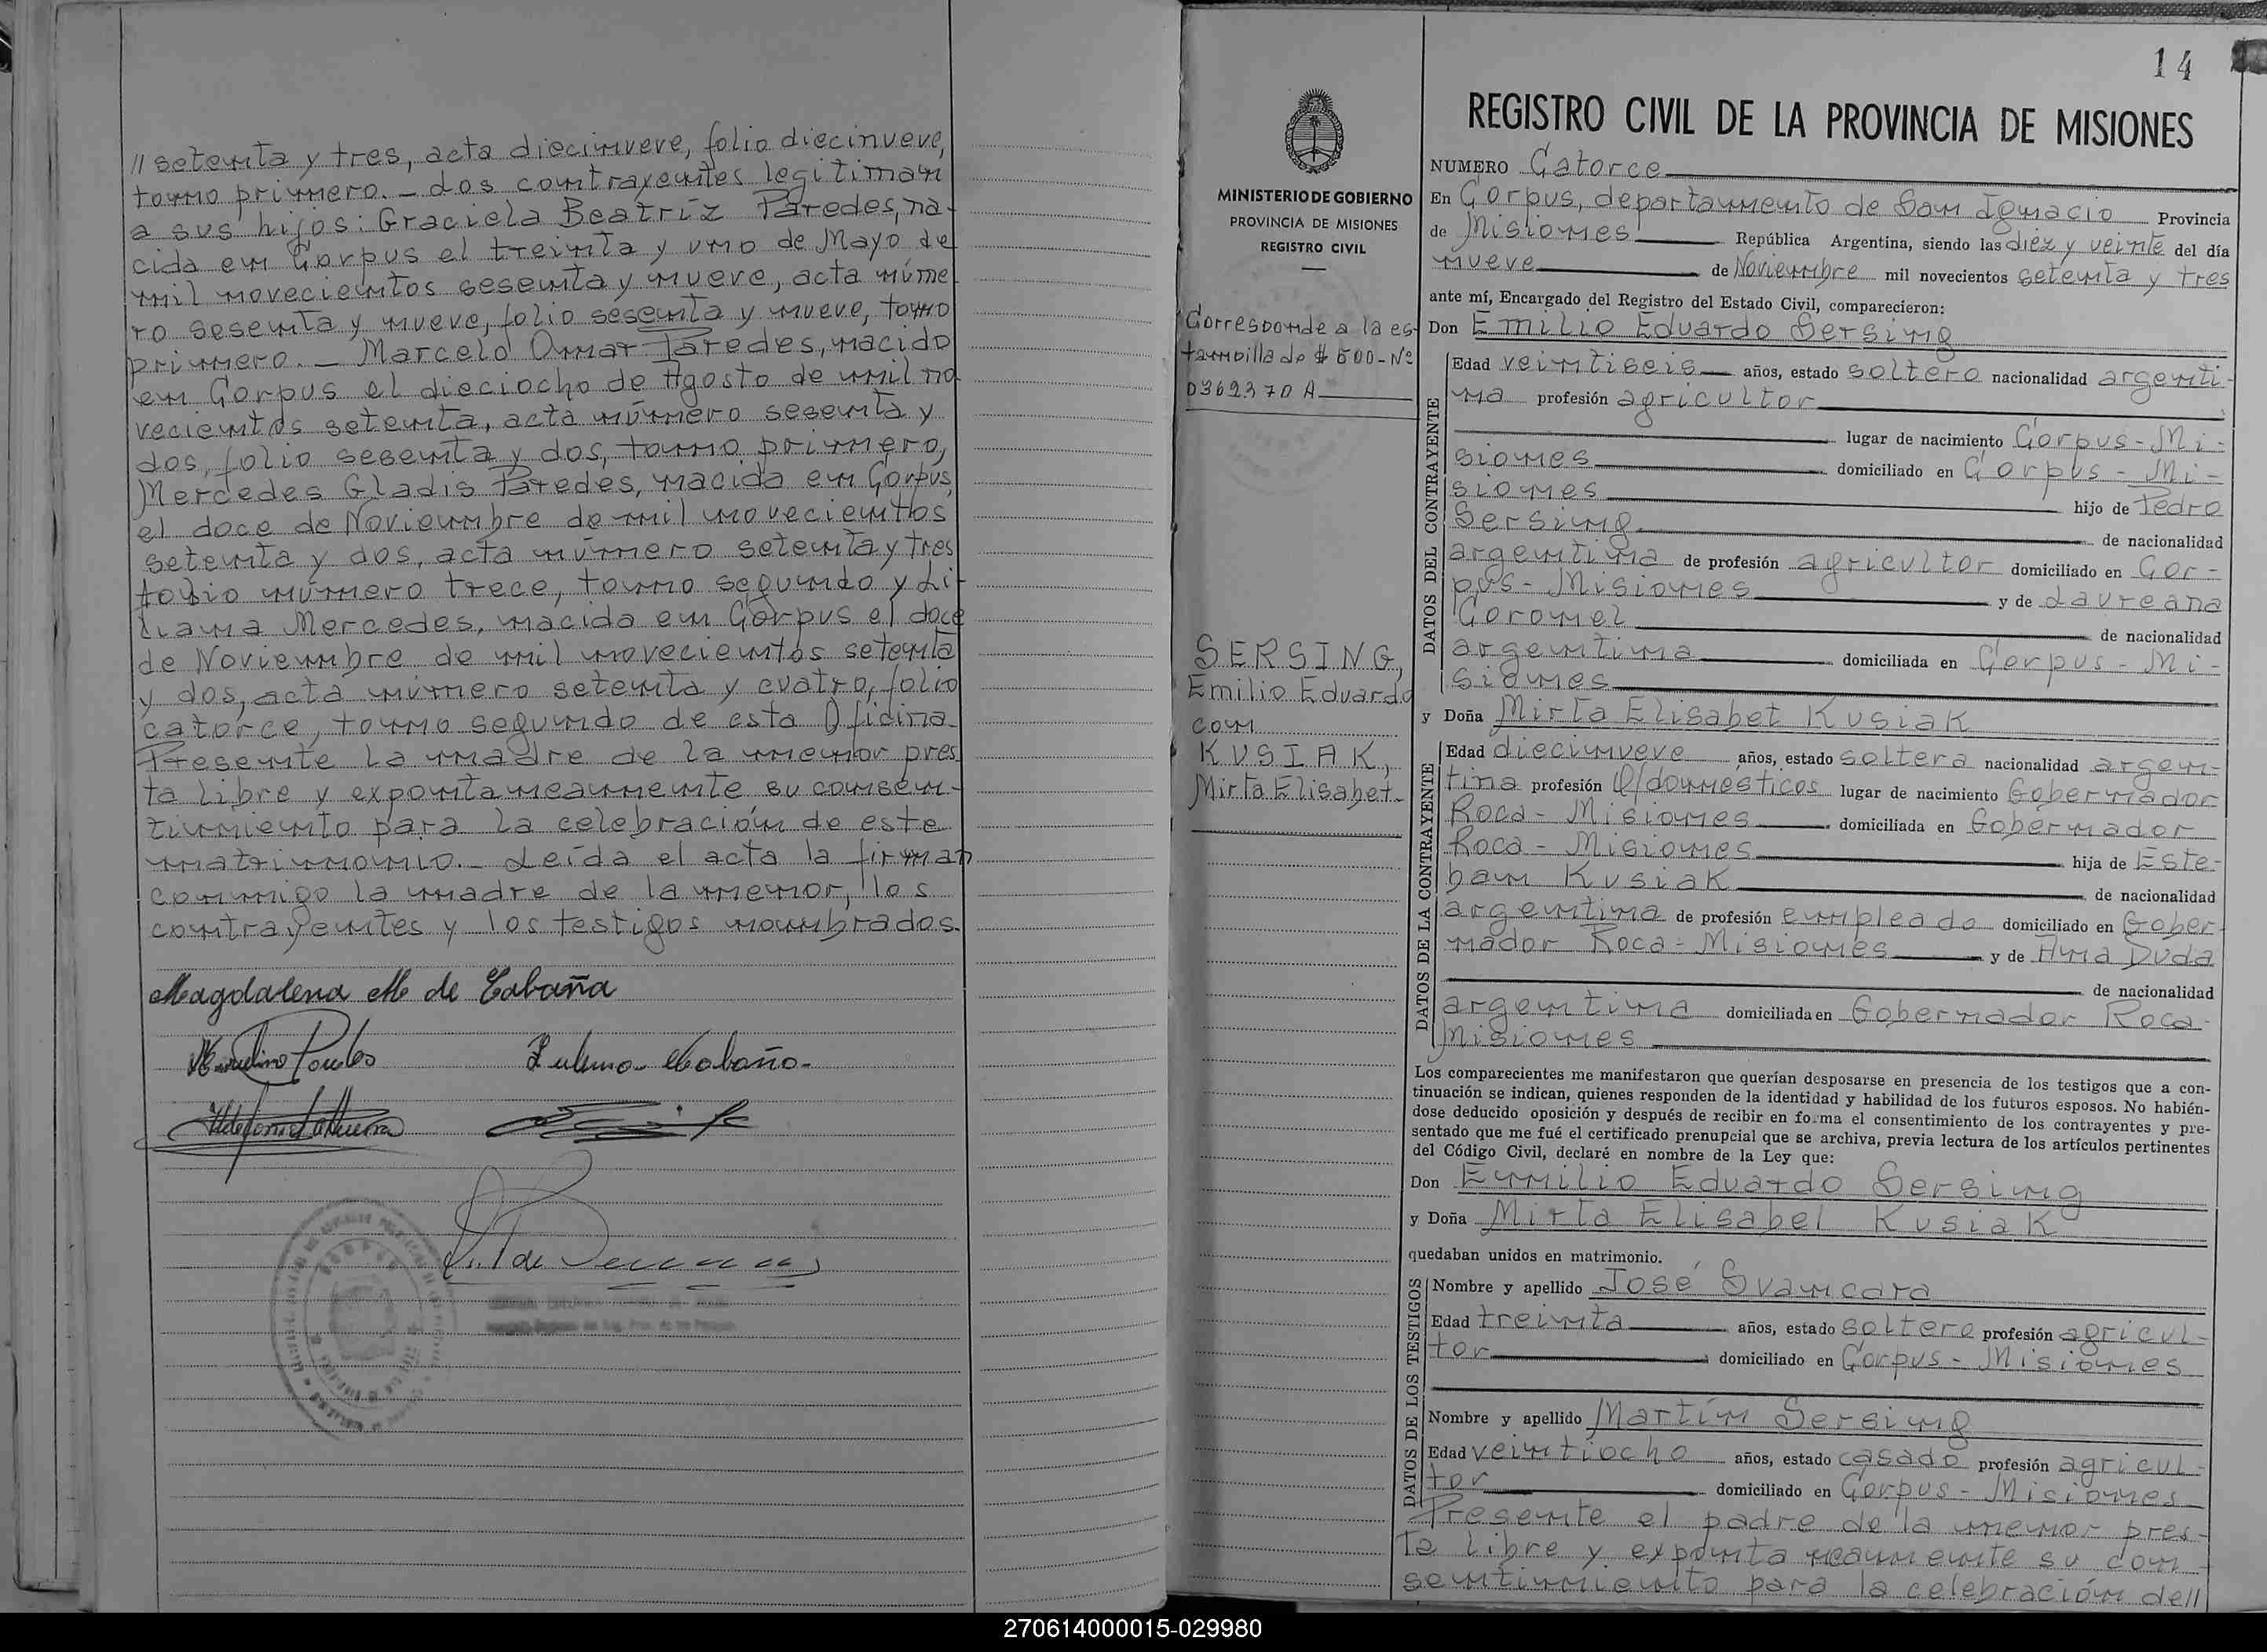 // setenta y tres, acta diecinueve, folio diecinueve,
tomo primero._ dos contrayentes legitiman
a sus hijos: Graciela Beatríz Paredes, na-
cida en Corpus el treinta y uno de Mayo de
mil novecientos sesenta y nueve, acta núme
ro sesenta y nueve, folio sesenta y nueve, tomo
primero._ Marcelo Omar Paredes, nacido
en Corpus el dieciocho de Agosto de mil no
vecientos setenta, acta número sesenta y
dos, folio sesenta y dos, tomo primero,
Mercedes Gladis Paredes, nacida en Corpus,
el doce de Noviembre de mil novecientos
setenta y dos, acta número setenta y tres
folio número trece, tomo segundo y Li-
liana Mercedes, nacida en Corpus el doce
de Noviembre de mil novecientos setenta
y dos, acta número setenta y cuatro, folio
catorce, tomo segundo de esta Oficina.
Presente la madre de la menor pres
ta libre y expontaneamente su consen-
timiento para la celebración de este
matrimonio._ Leída el acta la firman
conmigo la madre de la menor, los
contrayentes y los testigos nombrados.
Magdalena M de Cabaña
14
REGISTRO CIVIL DE LA PROVINCIA DE MISIONES
MINISTERIO DE GOBIERNO
PROVINCIA DE MISIONES
REGISTRO CIVIL
Corresponde a la es-
tampilla de $ 500- Nº
0369370 A
SERSING,
Emilio Eduardo
con
KUSIAK,
Mirta Elisabet-
NUMERO Catorce
En Corpus, departamento de San Ignacio Provincia
de Misiones República Argentina, siendo las diez y veinte del día
nueve de Noviembre mil novecientos setenta y tres
ante mí, Encargado del Registro del Estado Civil, comparecieron:
Don Emilio Eduardo Sersing
DATOS DEL CONTRAYENTE
Edad veintiseis años, estado soltero nacionalidad argenti-
na profesión agricultor
lugar de nacimiento Corpus-Mi-
siones domiciliado en Corpus-Mi-
siones hijo de Pedro
Sersing de nacionalidad
argentina de profesión agricultor domiciliado en Cor-
pus-Misiones y de Laureana
Coronel de nacionalidad
argentina domiciliada en Corpus-Mi-
siones
y Doña Mirta Elisabet Kusiak
DATOS DE LA CONTRAYENTE
Edad diecinueve años, estado soltera nacionalidad argen-
tina profesión Q/domésticos lugar de nacimiento Gobernador
Roca-Misiones domiciliada en Gobernador
Roca-Misiones hija de Este-
ban Kusiak de nacionalidad
argentina de profesión empleado domiciliado en Gober-
nador Roca-Misiones y de Ana Duda
de nacionalidad
argentina domiciliada en Gobernador Roca-
Misiones
Los comparecientes me manifestaron que querían desposarse en presencia de los testigos que a con-
tinuación se indican, quienes responden de la identidad y habilidad de los futuros esposos. No habién-
dose deducido oposición y después de recibir en forma el consentimiento de los contrayentes y pre-
sentado que me fué el certificado prenupcial que se archiva, previa lectura de los artículos pertinentes
del Código Civil, declaré en nombre de la Ley que:
Don Emilio Eduardo Sersing
y Doña Mirta Elisabel Kusiak
quedaban unidos en matrimonio.
DATOS DE LOS TESTIGOS
Nombre y apellido José Svancara
Edad treinta años, estado soltero profesión agricul-
tor domiciliado en Corpus-Misiones
Nombre y apellido Martín Sersing
Edad veintiocho años, estado casado profesión agricul-
tor domiciliado en Corpus-Misiones
Presente el padre de la menor pres-
ta libre y expontaneamente su con
sentimiento para la celebración de//
270614000015-029980